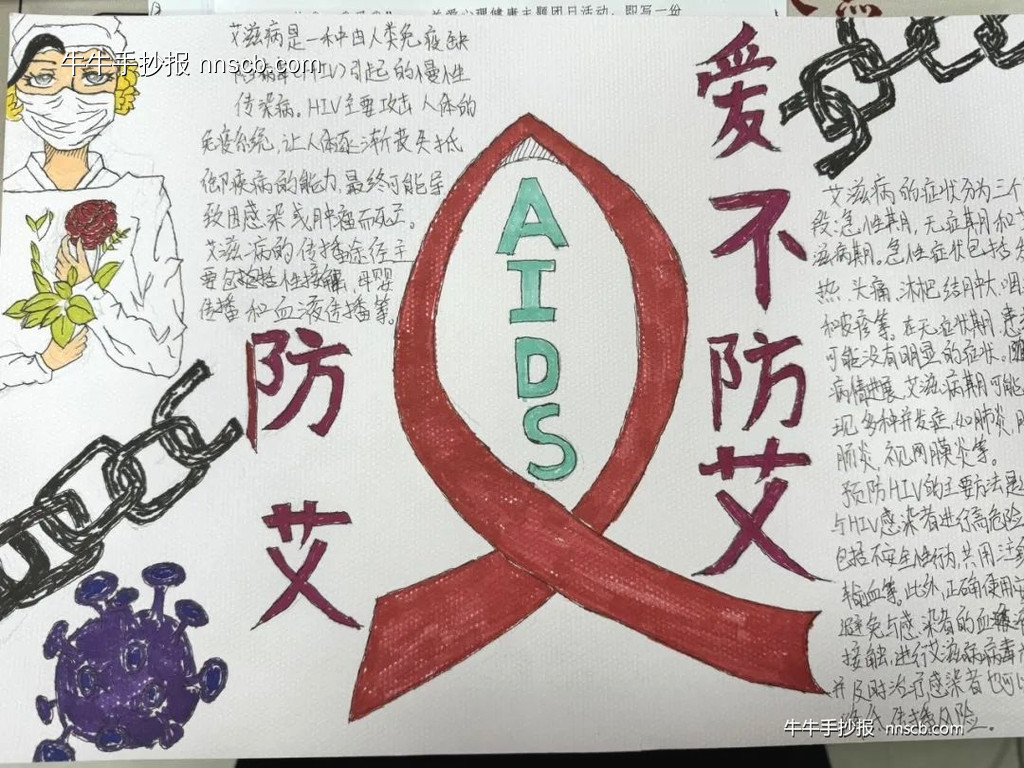 关爱心理健康主题团日活动,即写一份
牛牛手抄报 nnscb.com
艾滋病是一种由人类免疫缺
陷病毒(HIV)引起的慢性
传染病。HIV主要攻击人体的
免疫系统,让人体逐渐丧失抵
御疾病的能力,最终可能导
致因感染或肿瘤而死亡。
艾滋病的传播途径主
要包括性接触、母婴
传播和血液传播等。
防
艾
AIDS
爱
不
防
艾
艾滋病的症状分为三个
段:急性期,无症期和
滋病期。急性症状包括发
热、头痛、淋巴结肿大、咽
和皮疹等。在无症状期,患
可能没有明显的症状。随
病情进展,艾滋病期可能
现多种并发症,如肺炎,
肠炎,视网膜炎等。
预防HIV的主要方法是
与HIV感染者进行高危险
包括不安全性行为,共用注
输血等。此外,正确使用
避免与感染者的血液
接触,进行艾滋病病毒
并及时治疗感染者也可
传播风险。
牛牛手抄报 nnscb.com